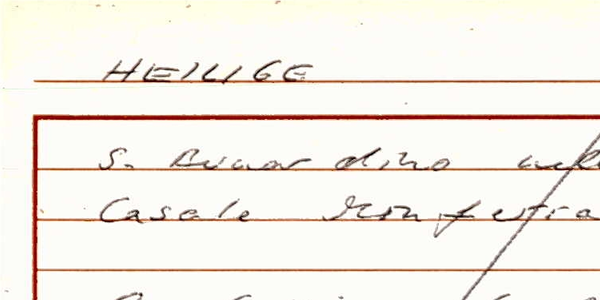 HEILIGE
S. Bernardino
Casale Monferra